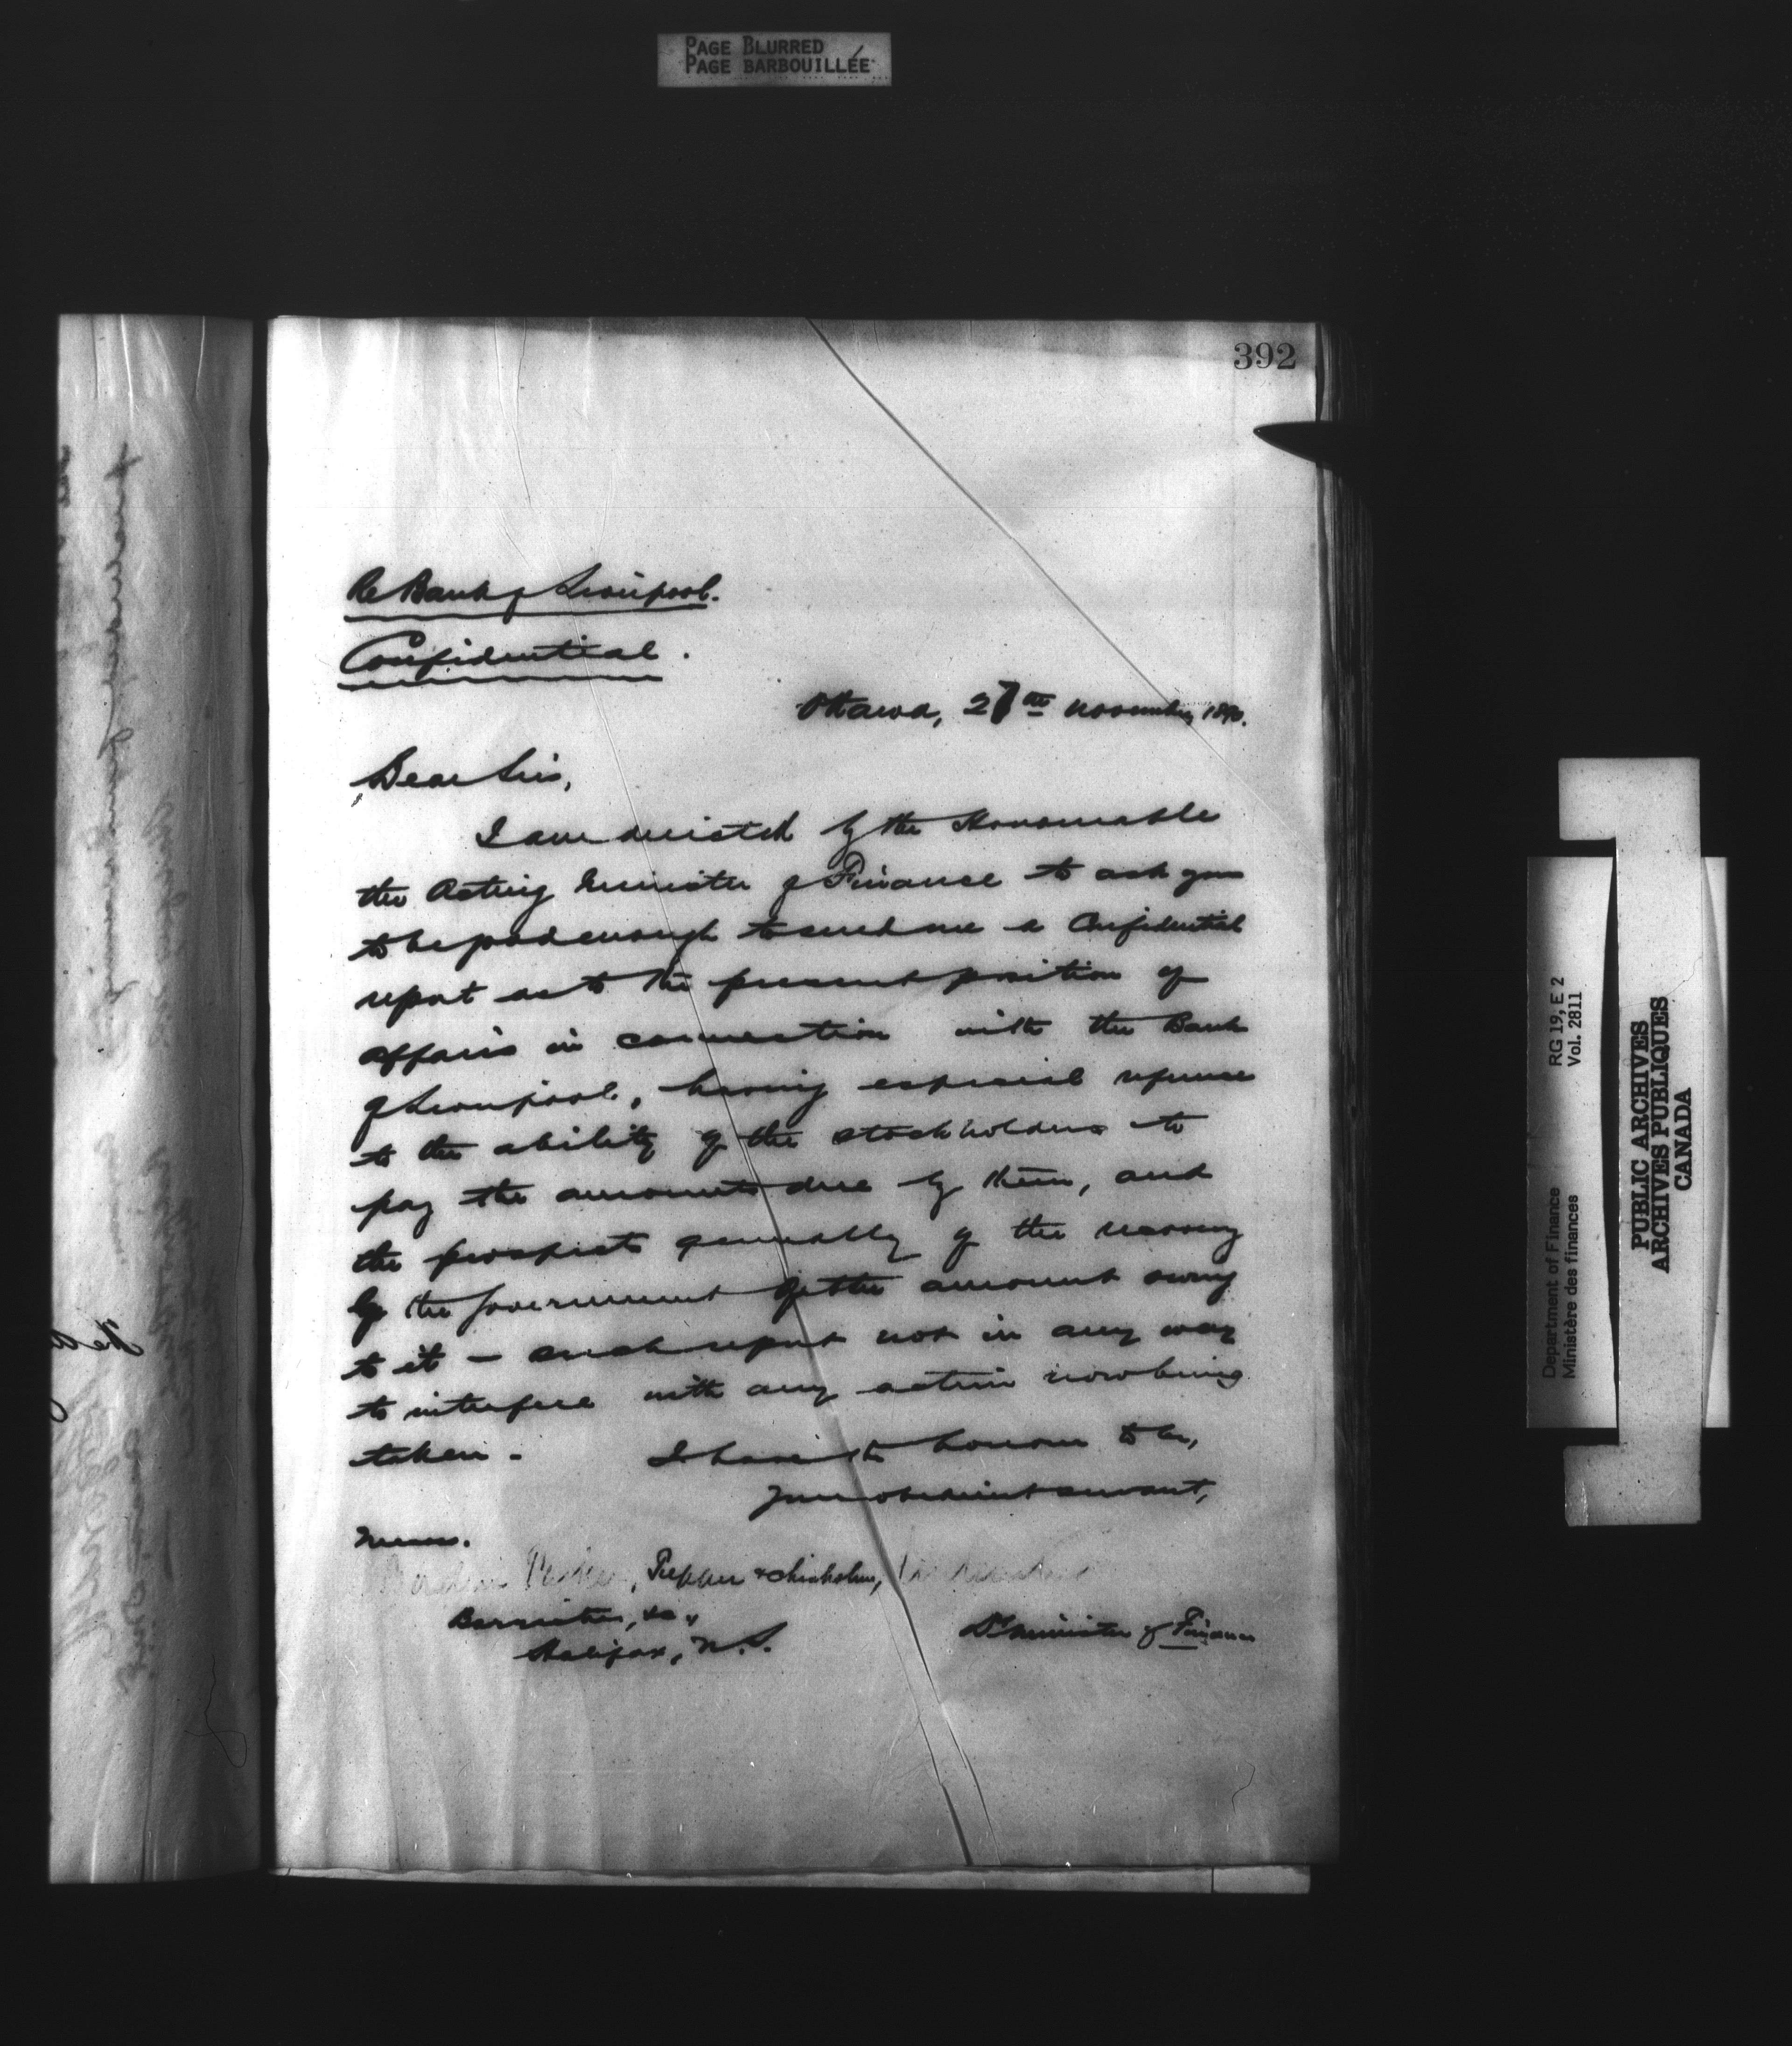 PAGE BLURRED
PAGE BARBOUILLÉE
392
Re Bank of Liverpool.
Confidential.
Ottawa, 27th November, 1890.
Dear Sirs,
I am directed by the Honourable
the Acting Minister of Finance to ask you
to be good enough to send me a Confidential
report as to the present position of
affairs in connection with the Bank
of Liverpool, having especial reference
to the ability of the stockholders to
pay the amounts due by them, and
the prospects generally of the recovery
by the Government of the amount owing
to it – such report not in any way
to interfere with any action now being
taken –
I have the honour to be,
Your obedient servant,
Messrs.
Tupper & Chisholm,
Barristers, &c.,
Halifax, N.S.
Dy Minister of Finance
Department of Finance RG 19, E 2
Ministère des finances Vol. 2811
PUBLIC ARCHIVES
ARCHIVES PUBLIQUES
CANADA